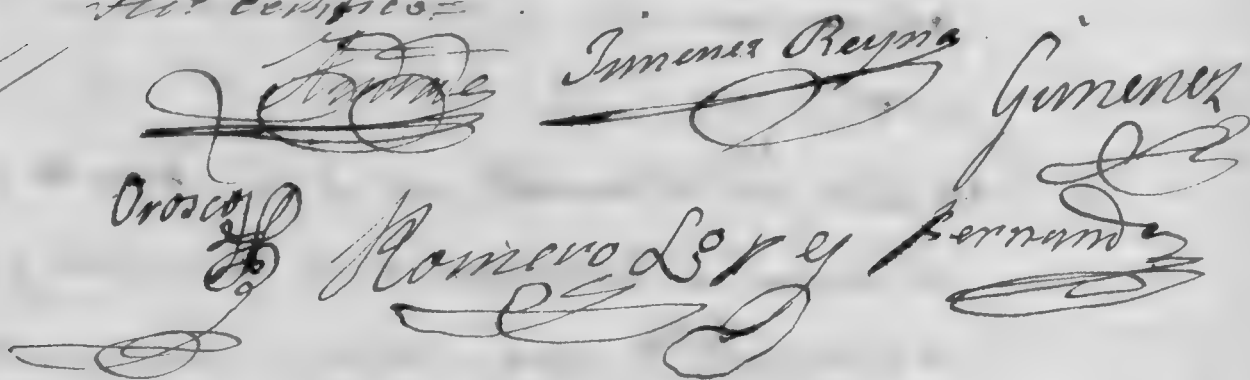 certifico=
Jimenez Reyna Gimenez
Orosco Romero Lopez Fernandz